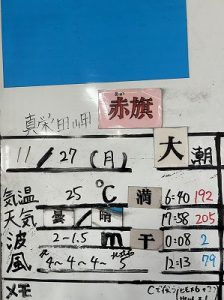 赤旗
大潮
11/27(月)
気温 25℃ 満 6:40 192
天気 曇/晴 17:58 205
波 2-1.5m 干 0:08 2
風 4~4~4~5 12:13 79
メモ